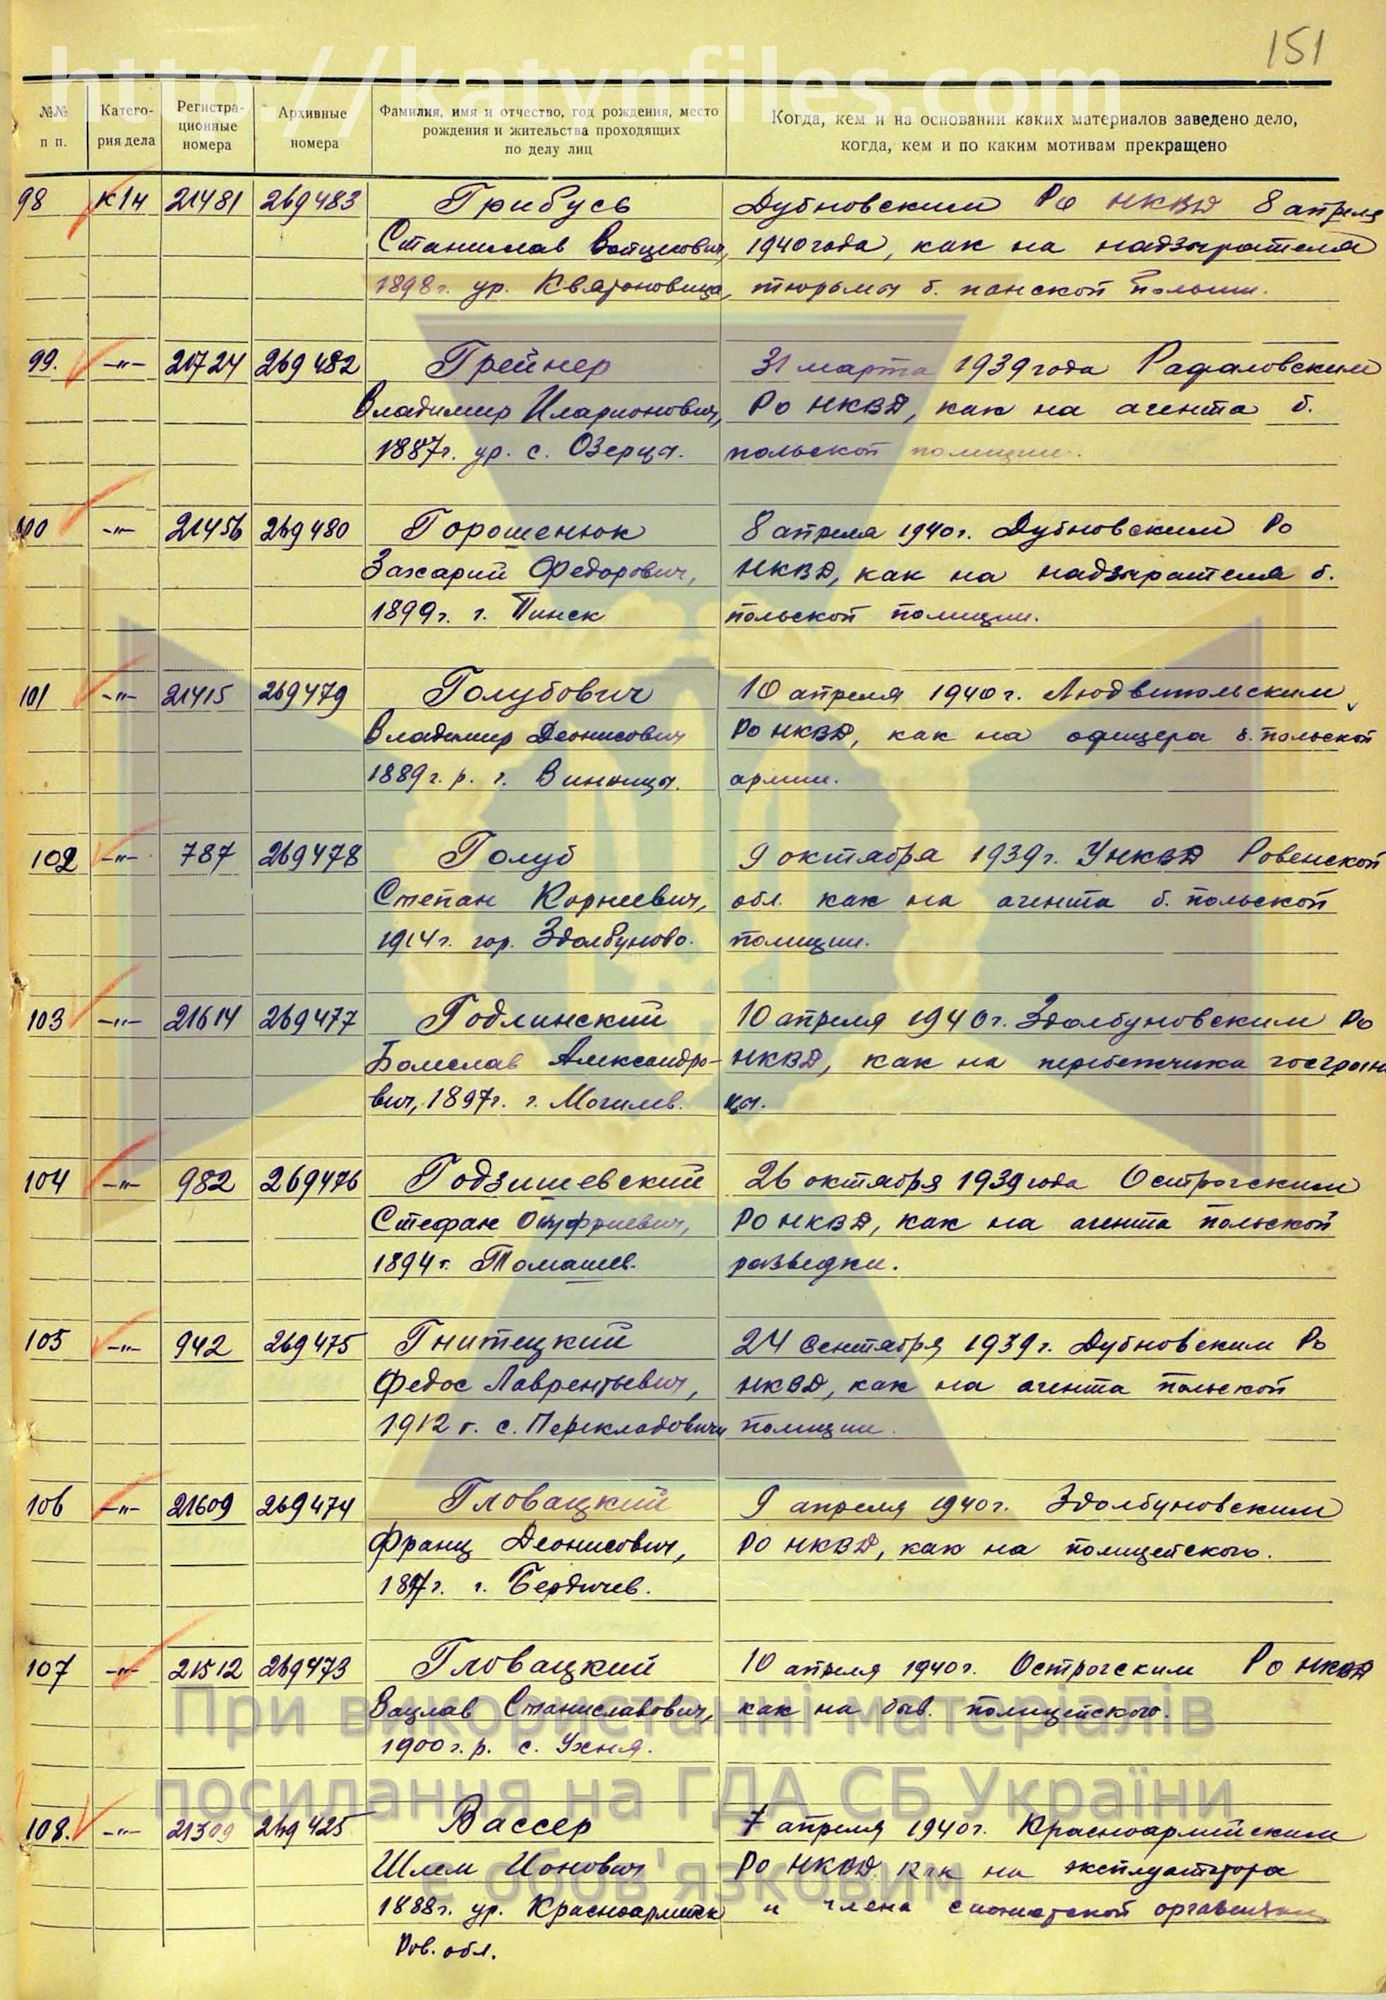 151
http://katynfiles.com
№№ п п.
Катего- рия дела
Регистра- ционные номера
Архивные номера
Фамилия, имя и отчество, год рождения, место рождения и жительства проходящих по делу лиц
Когда, кем и на основании каких материалов заведено дело, когда, кем и по каким мотивам прекращено
98 к/н 21481 269483 Грибусь Дубновским Ро НКВД 8 апреля
Станислав Войцехович, 1940 года, как на надзирателя
1898г. ур. тюрьмы б. панской Польши.
99. -"- 21724 269482 Грейнер 31 марта 1939 года Рафаловским
Владимир Иларионович, Ро НКВД, как на агента б.
1887г. ур. с. Озерцы. польской полиции.
100 -"- 21456 269480 Горошенюк 8 апреля 1940г. Дубновским Ро
Захарий Федорович, НКВД, как на надзирателя б.
1899г. г. Пинск польской полиции.
101 -"- 21415 269479 Голубович 10 апреля 1940г. Людвипольским
Владимир Деонисович Ро НКВД, как на офицера б. польской
1889г.р. г. Винница. армии.
102 -"- 787 269478 Голуб 9 октября 1939г. УНКВД Ровенской
Степан Корнеевич, обл. как на агента б. польской
1914г. гор. Здолбуново. полиции.
103 -"- 21614 269477 Годлинский 10 апреля 1940г. Здолбуновским Ро
Болеслав Александро- НКВД, как на перебежчика госграни
вич, 1897г. г. Могилев. цы.
104 -"- 982 269476 Годзишевский 26 октября 1939 года Острогским
Стефан Онуфриевич, Ро НКВД, как на агента польской
1894г. Томашев. разведки.
105 -"- 942 269475 Гнитецкий 24 сентября 1939г. Дубновским Ро
Федос Лаврентьевич, НКВД, как на агента польской
1912 г. с. Перекладовичи полиции.
106 -"- 21609 269474 Гловацкий 9 апреля 1940г. Здолбуновским
Франц Деонисович, Ро НКВД, как на полицейского.
г. Бердичев.
107 -"- 21512 269473 Гловацкий 10 апреля 1940г. Острогским Ро НКВД
Вацлав Станиславович, как на быв. полицейского.
1900г.р. с. Ухня.
108. -"- 21309 269425 Вассер 7 апреля 1940г. Красноармейским
Шлем Ионович Ро НКВД как на эксплуататора
1888г. ур. Красноармейск и члена сионистской организации
Ров. обл.
При використанні матеріалів
посилання на ГДА СБ України
є обов'язковим